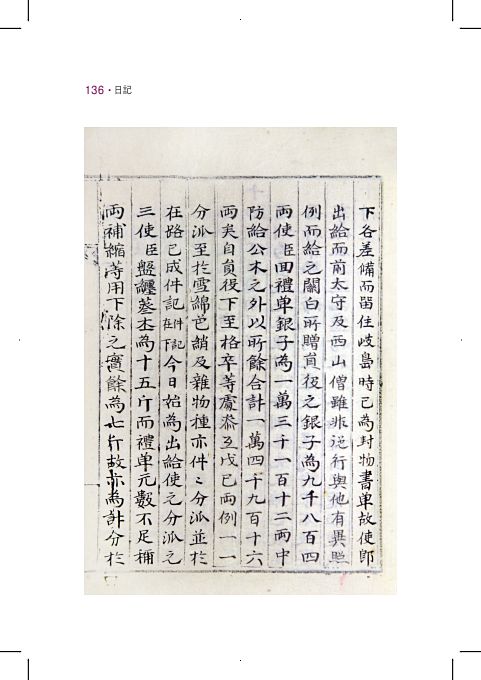 136・日記
下各差備而留住岐島時已為封物書單故使卽
出給而前太守及西山僧雖非逆行與他有異照
例而給之關白所贈員役之銀子為九千八百四
兩使臣回禮单銀子為一萬三千一百十二兩中
防給公木之外以所餘合計一萬四千九百十六
兩矣自員役下至格卒等處叅互戊已兩例一一
分派至於雪綿芚綃及雜物種亦件〻分派並於
在路已成件記件記在下今日始為出給使之分派之
三使臣盤纏蔘本為十五斤而禮单元數不足補
両補縮蓱用下除之實餘為七斤故亦為計分於